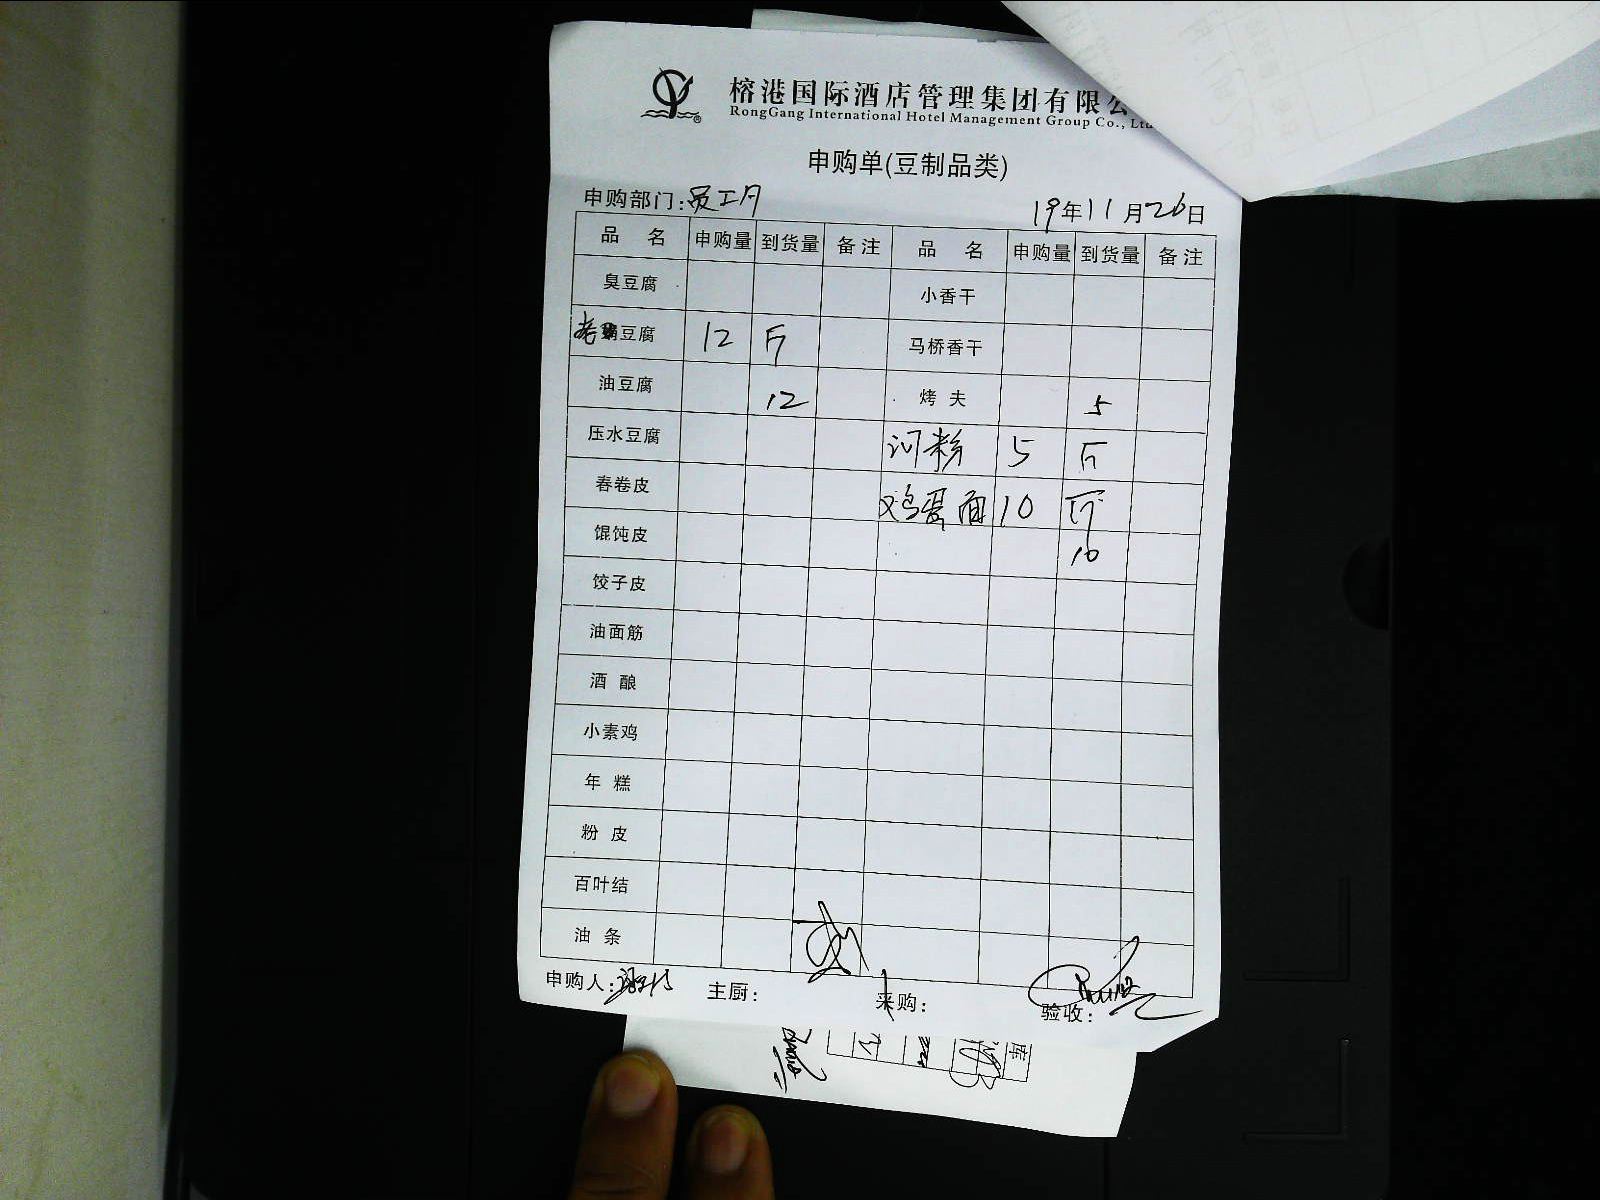 榕港国际酒店管理集团有限公
RongGang International Hotel Management Group Co., Ltd
申购单(豆制品类)
申购部门:员工月 19年11月26日
品 名 申购量 到货量 备注 品 名 申购量 到货量 备注
臭豆腐 小香干
老豆腐 12 斤 马桥香干
油豆腐 12 烤 夫 5
压水豆腐 河粉 5 斤
春卷皮 鸡蛋面 10 斤
馄饨皮 10
饺子皮
油面筋
酒 酿
小素鸡
年 糕
粉 皮
百叶结
油 条
申购人: 主厨: 采购: 验收:
库